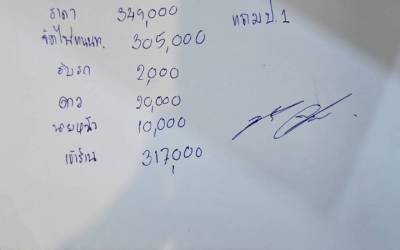 ราคา 349,000 แถมป.1
จัดไฟแนนท. 305,000
รับรถ 2,000
ดาว 20,000
นายหน้า 10,000
เข้าร้าน 317,000